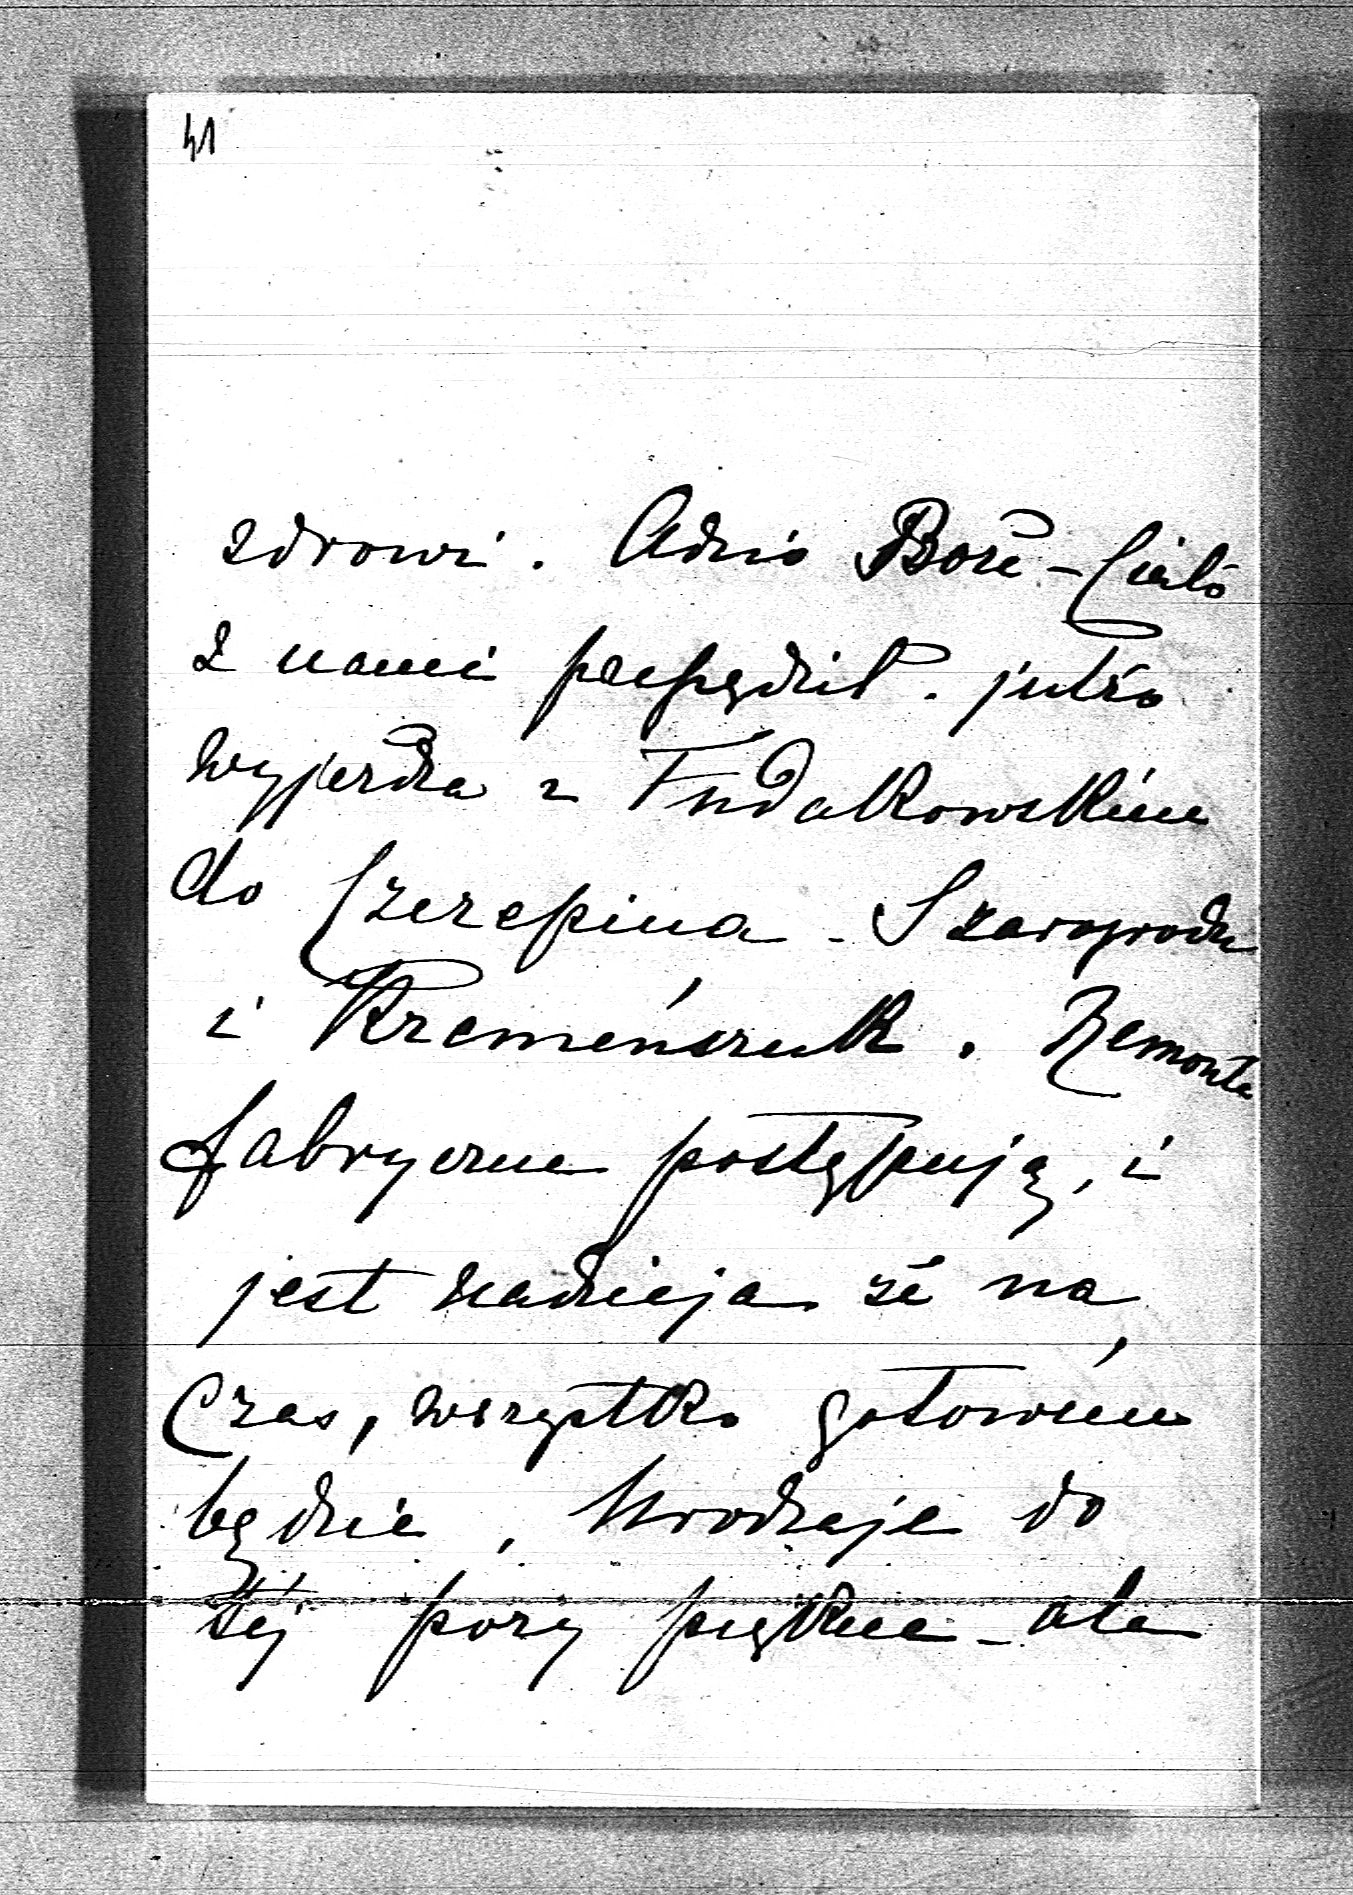 41
zdrowi. Adzio Boże-Ciało
z nami przepędził. jutro
wyjeżdża z Fudakowskim
do Czerepina - Szarogrodu
i Krzemeńczuk. Remonta
fabryczne postępują, i
jest nadzieja że na
czas, wszystko gotowém
będzie, Urodzaje do
téj pory piękne - ale